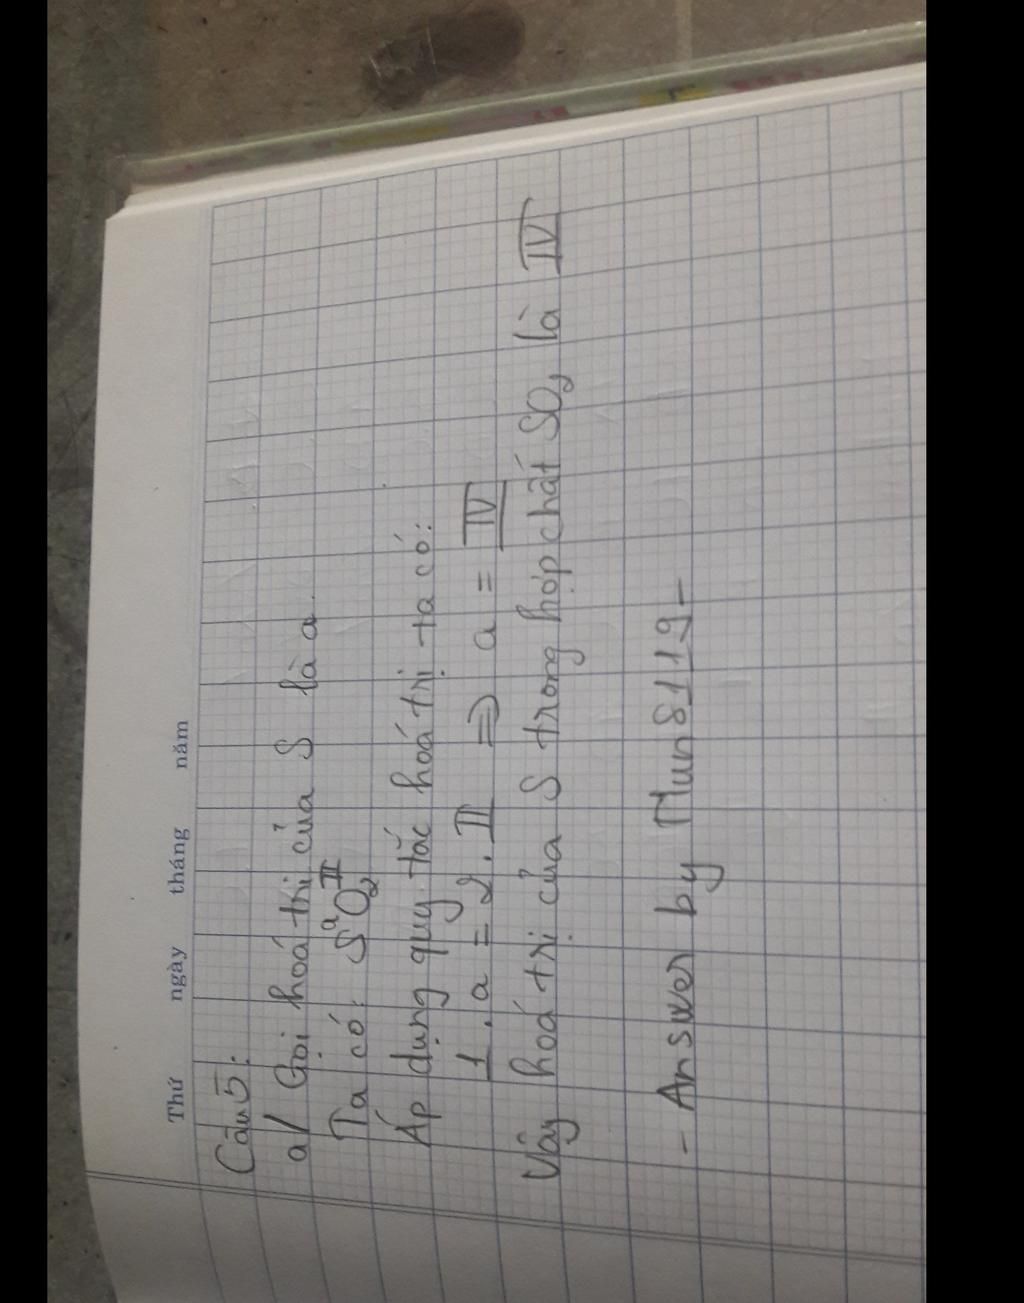 Thứ ngày tháng năm
Câu 5:
a/ Gọi hoá trị của S là a.
Ta có: SᵃO₂ᴵᴵ
Áp dụng quy tắc hoá trị ta có:
1. a = 2. II ⇒ a = IV
Vậy hoá trị của S trong hợp chất SO₂ là IV
- Answer by Mun8119 -